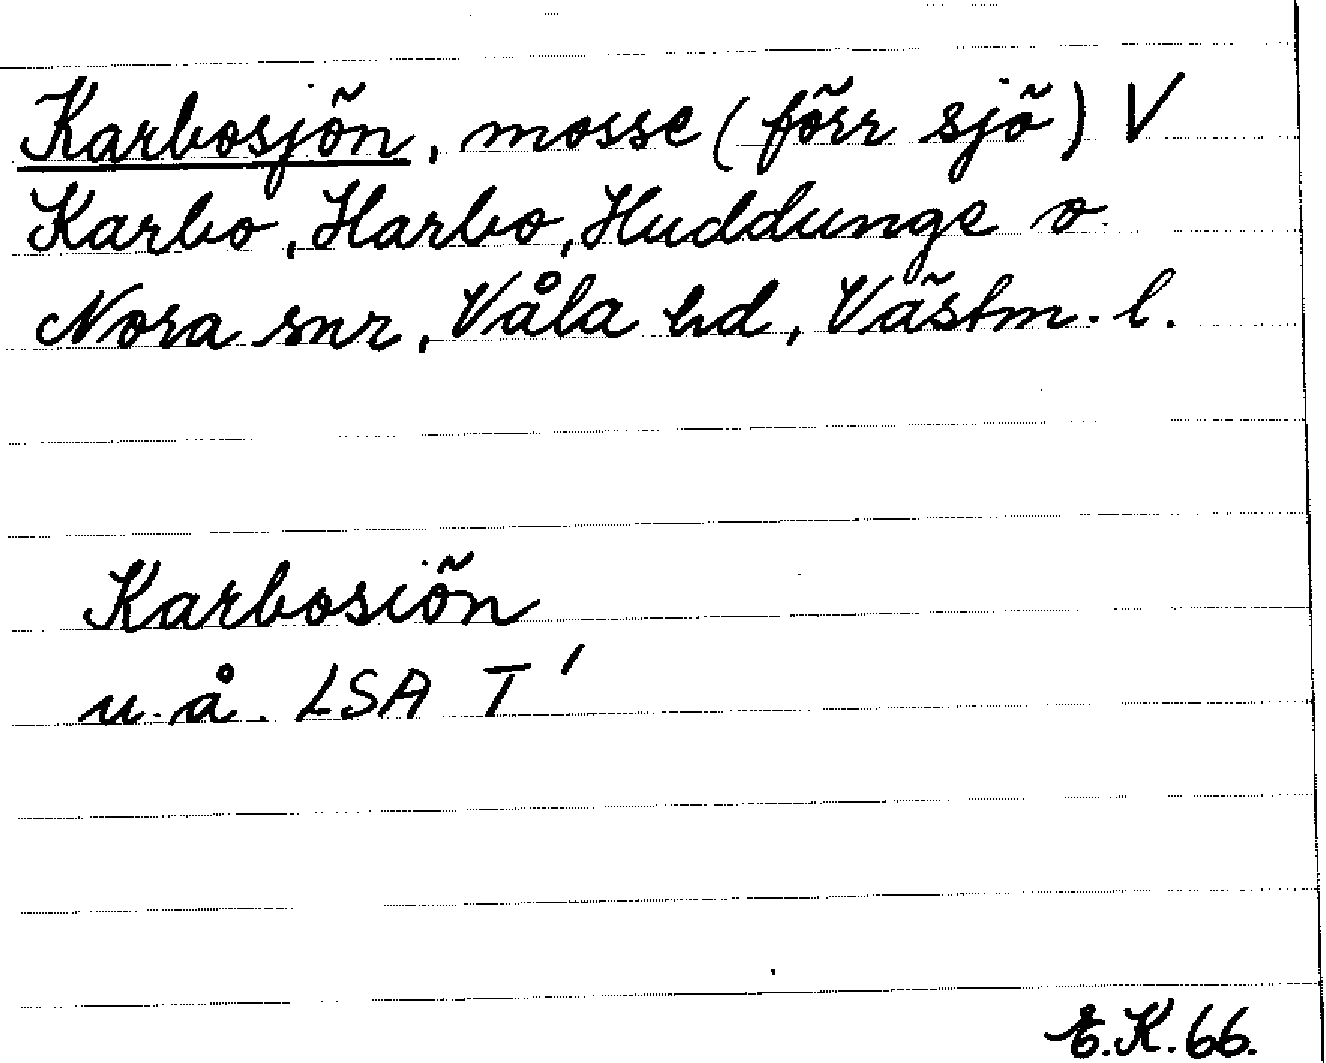 Karbosjön, mosse (förr sjö) V
Karbo, Harbo, Huddunge o.
Nora snr, Våla hd, Västm. l.
Karbosiön
u. å. LSA T'
E.K. 66.